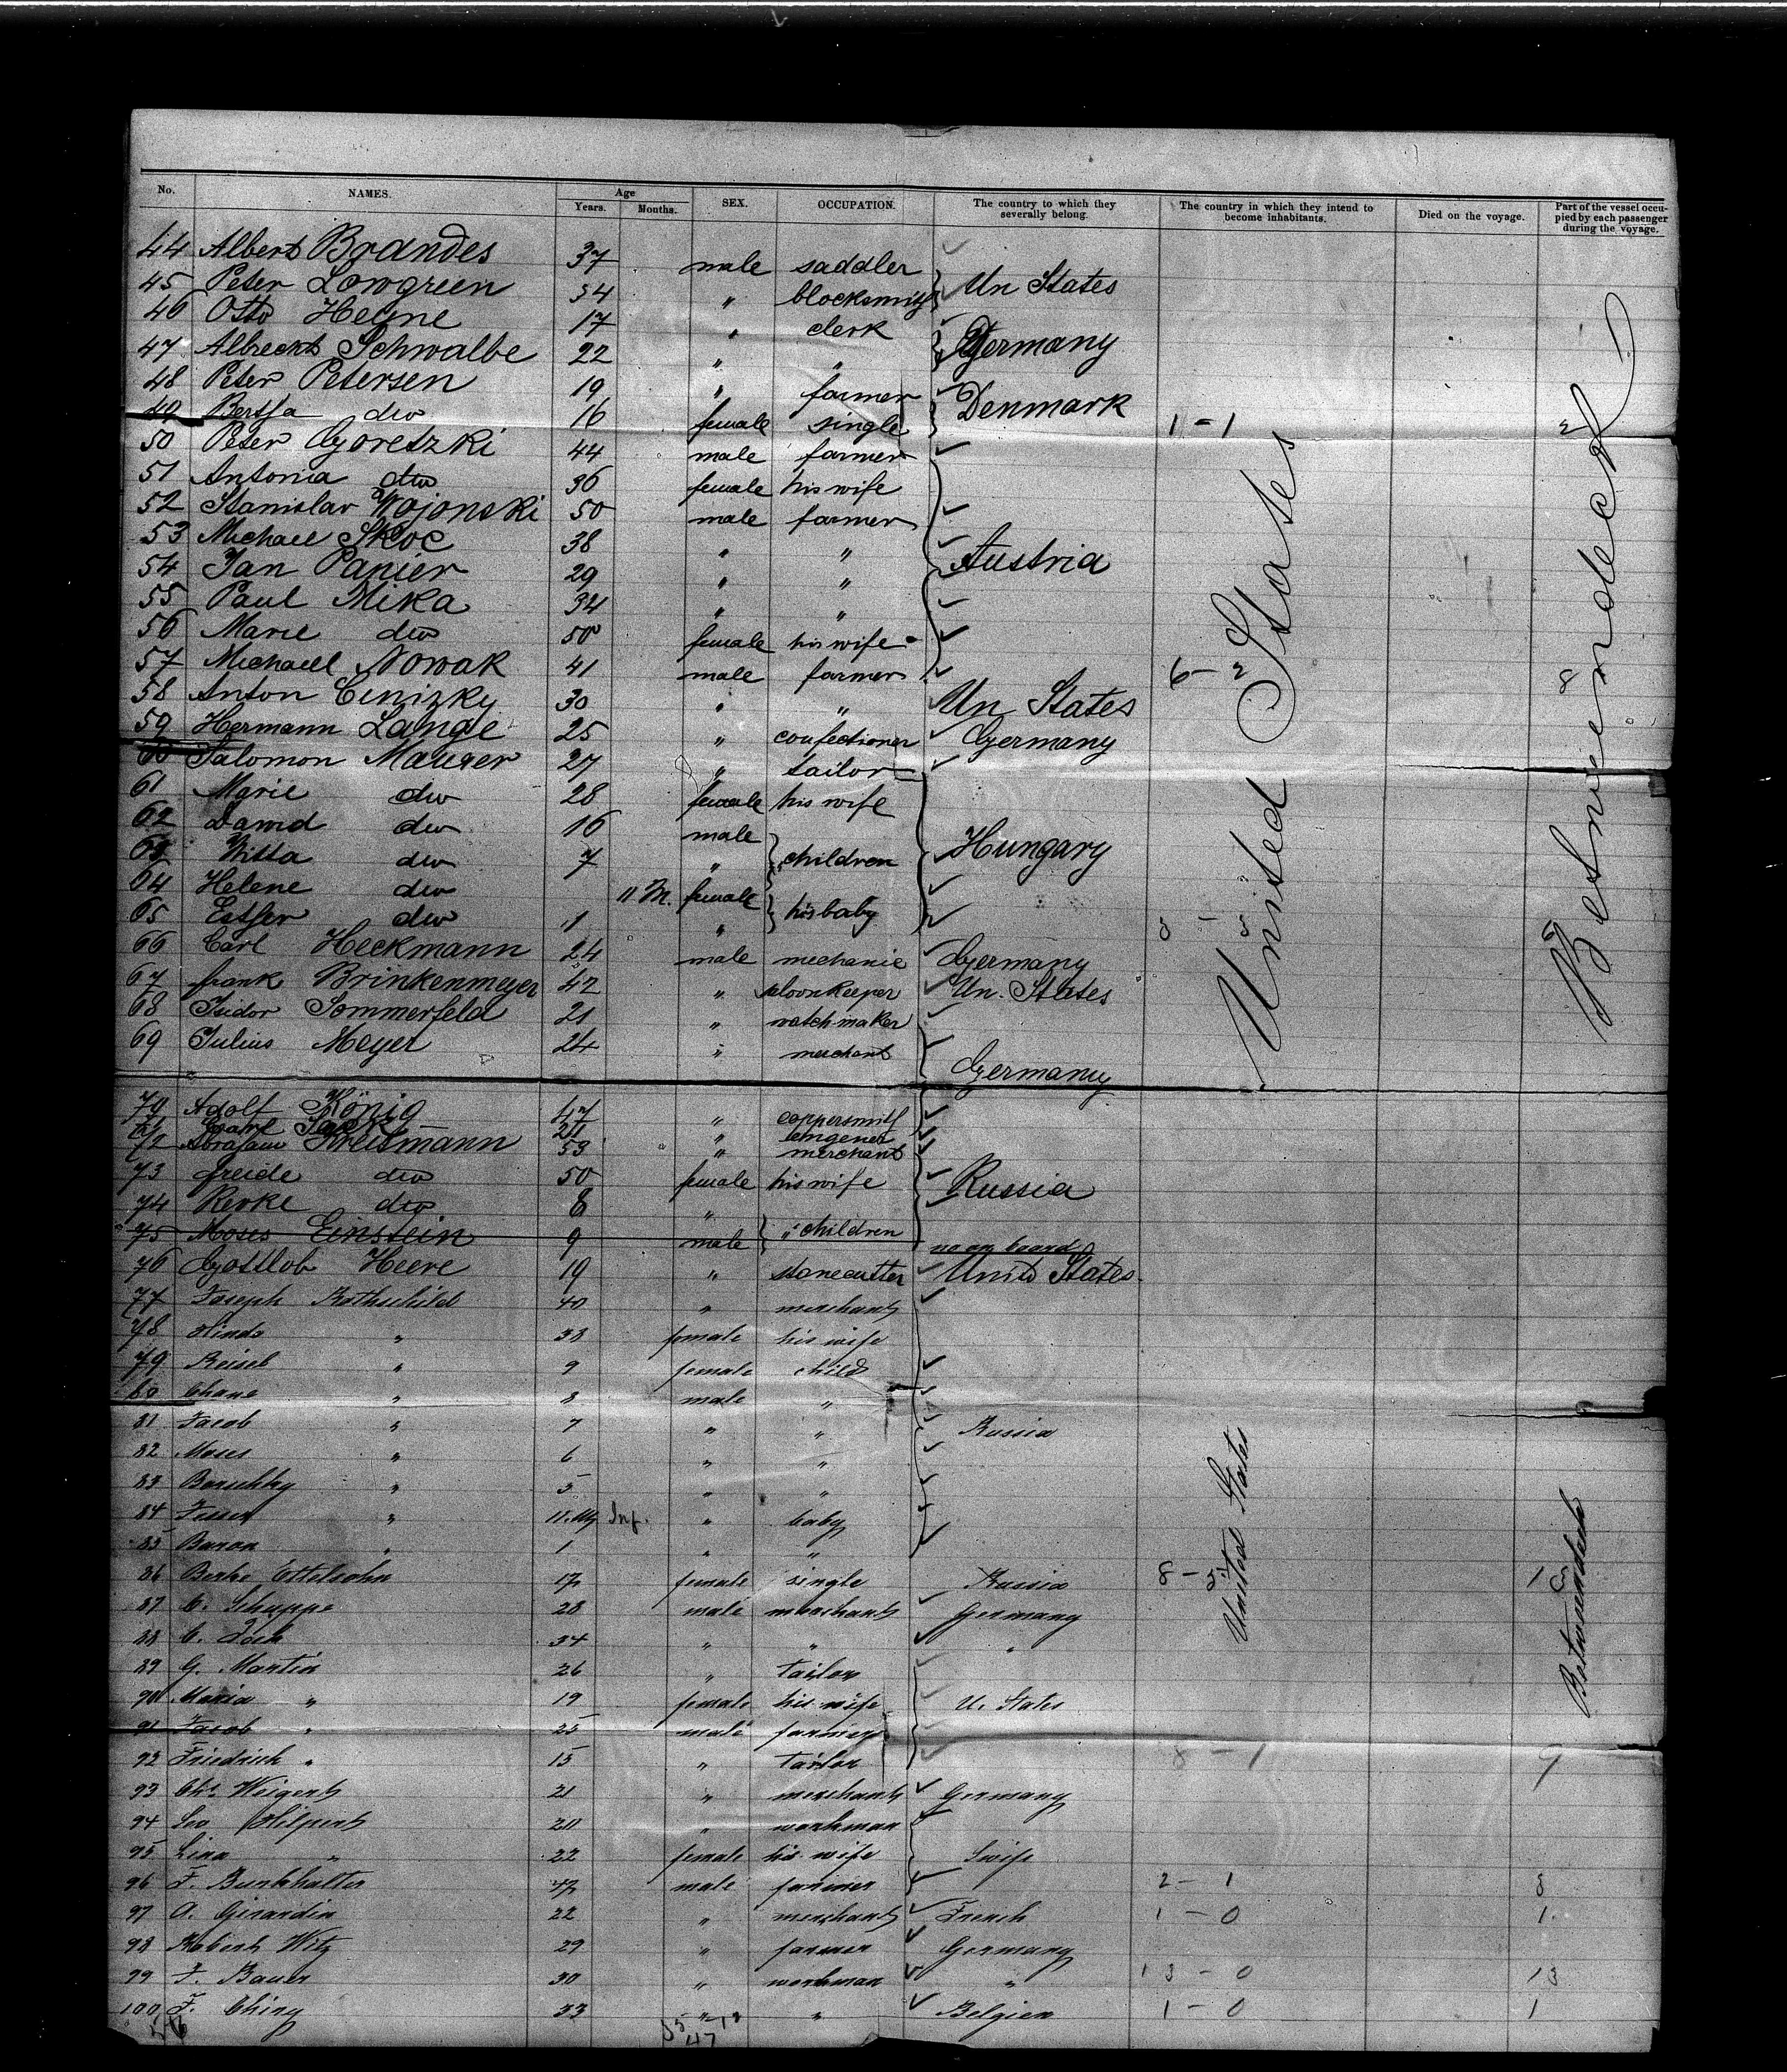 No. NAMES. Age Years. Months. SEX. OCCUPATION. The country to which they severally belong. The country in which they intend to become inhabitants. Died on the voyage. Part of the vessel occupied by each passenger during the voyage.
44 Albert Brandes 37 male saddler
45 Peter Lowgreen 34 " blocksmith Un States
46 Otto Heyne 17 " clerk
47 Albrecht Schwalbe 22 " " Germany
48 Peter Petersen 19 " farmer Denmark
49 Bertha dto 16 female single 1-1 2
50 Peter Goretzki 44 male farmer
51 Antonia dto 36 female his wife
52 Stanislav Wojonski 50 male farmer
53 Michael Skoc 38 " "
54 Jan Panier 29 " " Austria
55 Paul Mika 34 " "
56 Marie dto 50 female his wife
57 Michael Nowak 41 male farmer 6-2 8
58 Anton 30 " " Un States
59 Hermann Lange 25 " confectioner Germany
60 Salomon Maurer 27 " tailor
61 Marie dto 28 female his wife
62 David dto 16 male
63 dto 7 " children Hungary
64 Helene dto 11 M. female
65 Esther dto 1 " his baby
66 Carl Heckmann 24 male mechanic Germany
67 frank Brinkenmeyer 42 " saloonkeeper Un. States
68 Isidor Sommerfeld 21 " watchmaker
69 Julius Meyer 24 " merchant Germany
United States
Betweindeck
70 Adolf König 47 " coppersmith
71 Carl "
72 Abraham 53 " merchant
73 freide dto 50 female his wife Russia
74 Revke dto 8 "
75 Moses Einstein 9 male " children no on board
76 Gottlob Heere 19 " stonecutter Unitd States.
77 Joseph Rothschild 40 " merchant
78 Hinda " 38 female his wife
79 Reisel " 9 female child
80 Chane " 8 male "
81 Jacob " 7 " " Russia
82 Moses " 6 " "
83 " 5 " "
84 " 11. M Inf. " baby
85 Baron " 1 " "
86 Berke Ettelsohn 17 female single Russia 8-5
87 C. Schuppe 28 male merchant Germany
88 C. 34 " " "
89 G. Martin 26 " tailor
90 Maria " 19 female his wife U. States
91 Jacob " 25 male farmer
92 Friedrich " 15 " tailor 8-1 9
United States
Betweendeck
93 Chs Weigert 21 " merchant Germany
94 Leo Hilpert 20 " workman
95 Lina " 22 female his wife Swiss
96 F. Burkhalter 47 male farmer 2-1 3
97 A. Girardin 22 " merchant French 1-0 1
98 Robert Witz 29 " farmer Germany
99 F. Bauer 30 " workman " 13-0 13
100 F. Chiny 33 " " Belgien 1-0 1